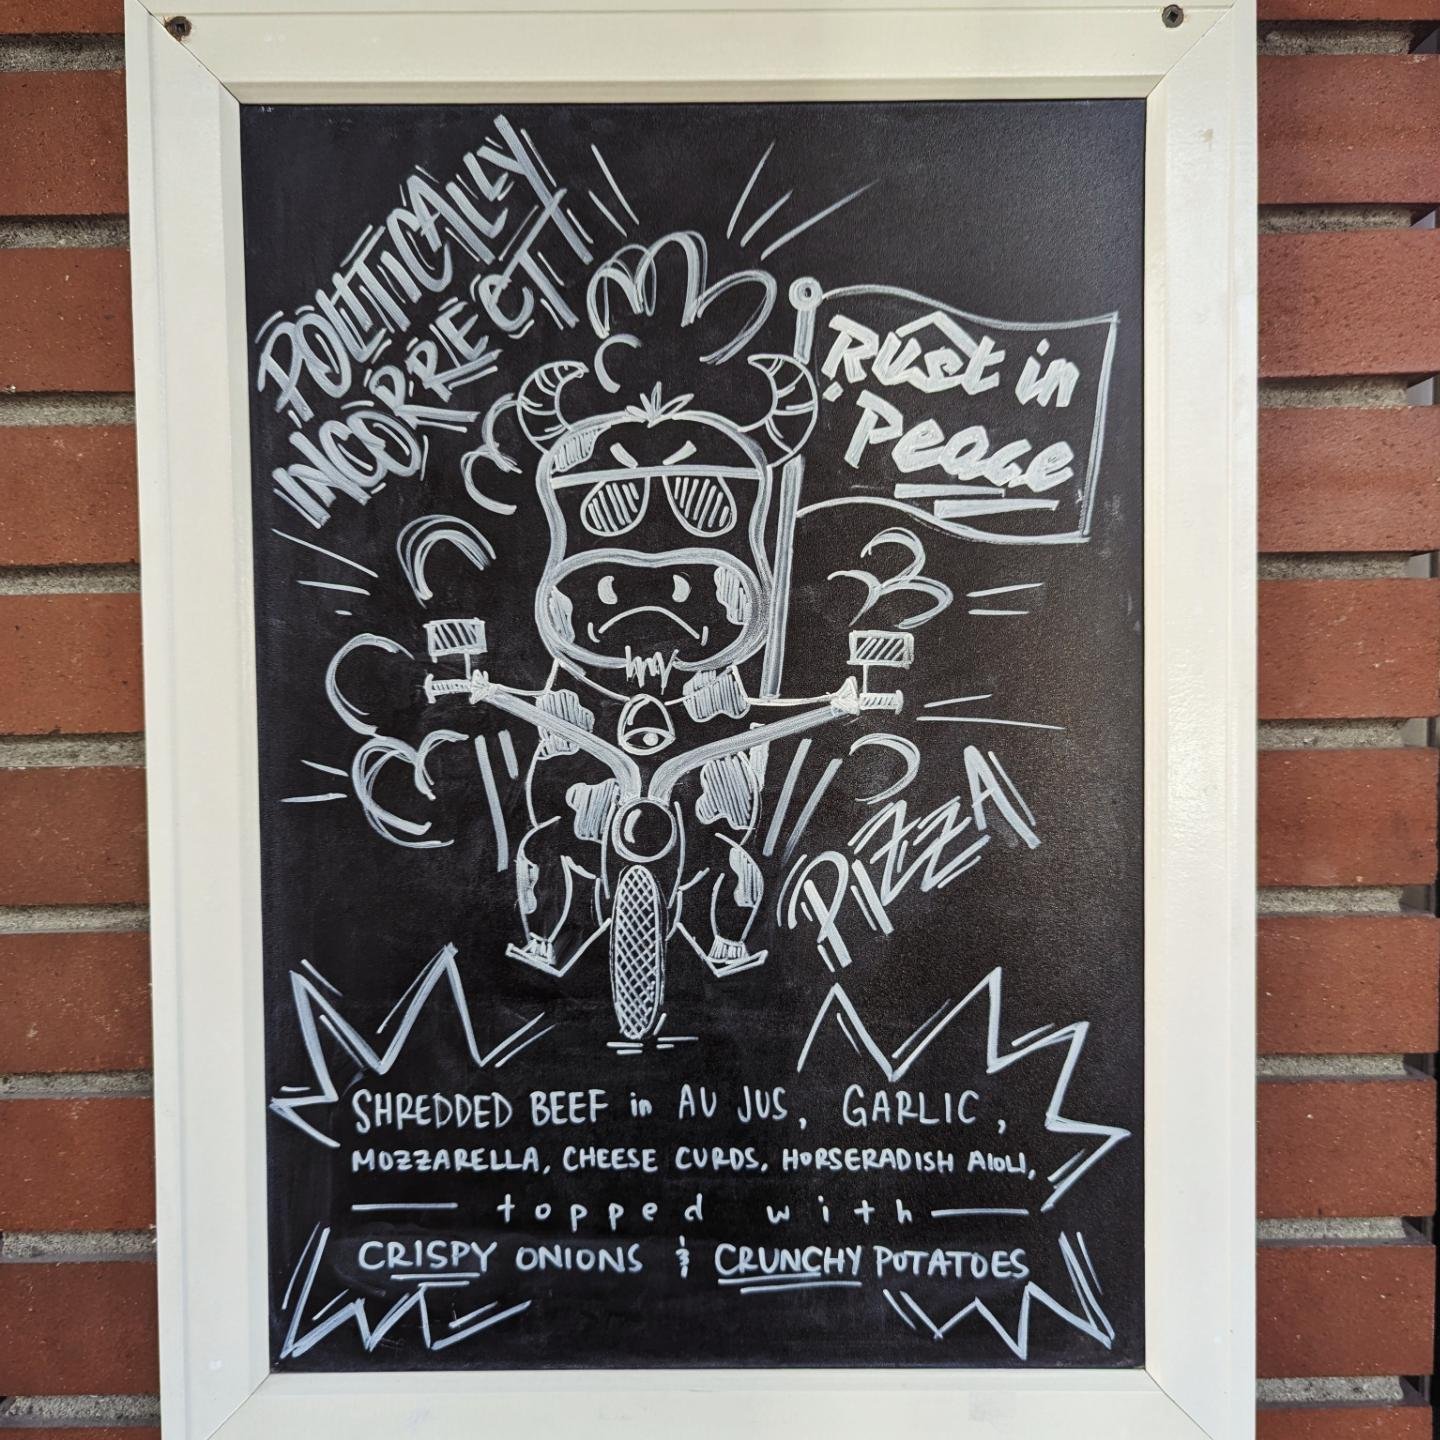 POLITICALLY
INCORRECT
Rust in
Peace
PIZZA
SHREDDED BEEF in AU JUS, GARLIC,
MOZZARELLA, CHEESE CURDS, HORSERADISH AIOLI,
topped with
CRISPY ONIONS & CRUNCHY POTATOES